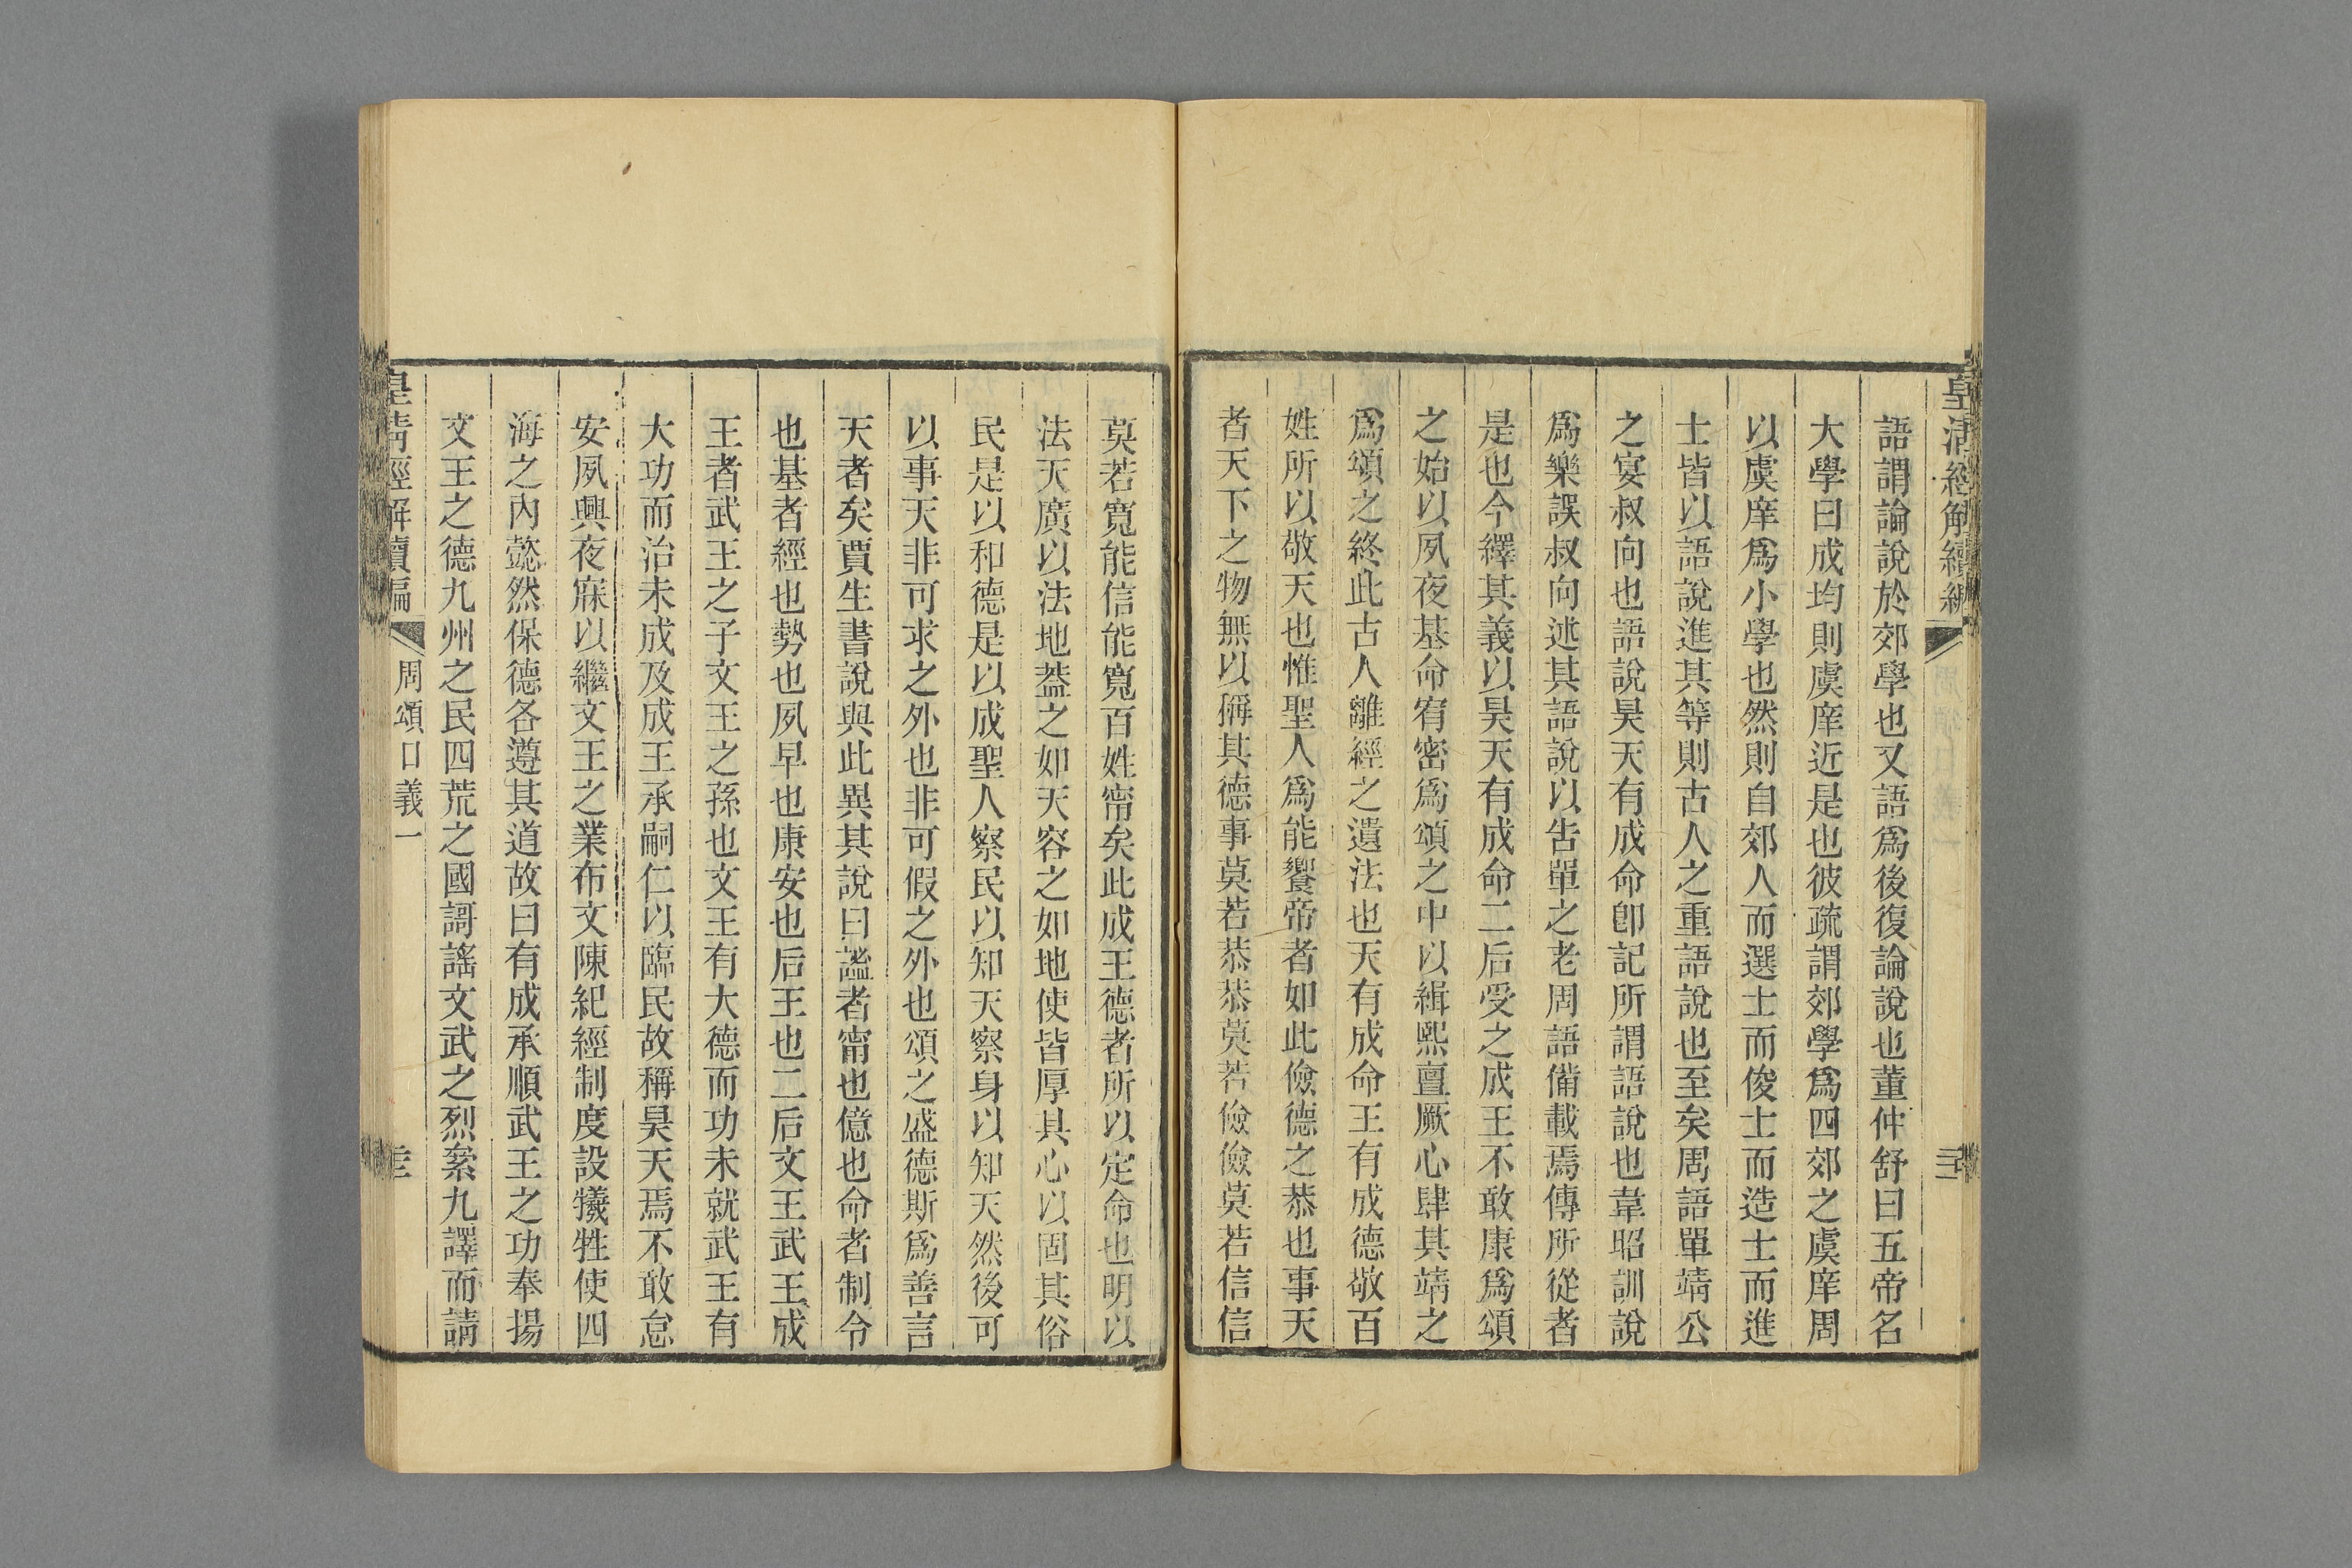 皇清經解續編
語謂論說於郊學也又語爲後復論說也董仲舒曰五帝名
大學曰成均則虞庠近是也彼疏謂郊學爲四郊之虞庠周
以虞庠爲小學也然則自郊人而選士而俊士而造士而進
士皆以語說進其等則古人之重語說也至矣周語單靖公
之宴叔向也語說昊天有成命卽記所謂語說也韋昭訓說
爲樂誤叔向述其語說以告單之老周語備載焉傳所從者
是也今繹其義以昊天有成命二后受之成王不敢康爲頌
之始以夙夜基命宥密爲頌之中以緝熙亶厥心肆其靖之
爲頌之終此古人離經之遺法也天有成命王有成德敬百
姓所以敬天也惟聖人爲能饗帝者如此儉德之恭也事天
者天下之物無以稱其德事莫若恭恭莫若儉儉莫若信信
莫若寬能信能寬百姓甯矣此成王德者所以定命也明以
法天廣以法地蓋之如天容之如地使皆厚其心以固其俗
民是以和德是以成聖人察民以知天察身以知天然後可
以事天非可求之外也非可假之外也頌之盛德斯爲善言
天者矣賈生書說與此異其說曰謐者甯也億也命者制令
也基者經也勢也夙早也康安也后王也二后文王武王成
王者武王之子文王之孫也文王有大德而功未就武王有
大功而治未成及成王承嗣仁以臨民故稱昊天焉不敢怠
安夙興夜寐以繼文王之業布文陳紀經制度設犧牲使四
海之內懿然保德各遵其道故曰有成承順武王之功奉揚
文王之德九州之民四荒之國謌謠文武之烈絫九譯而請
皇清經解續編 周頌口義一